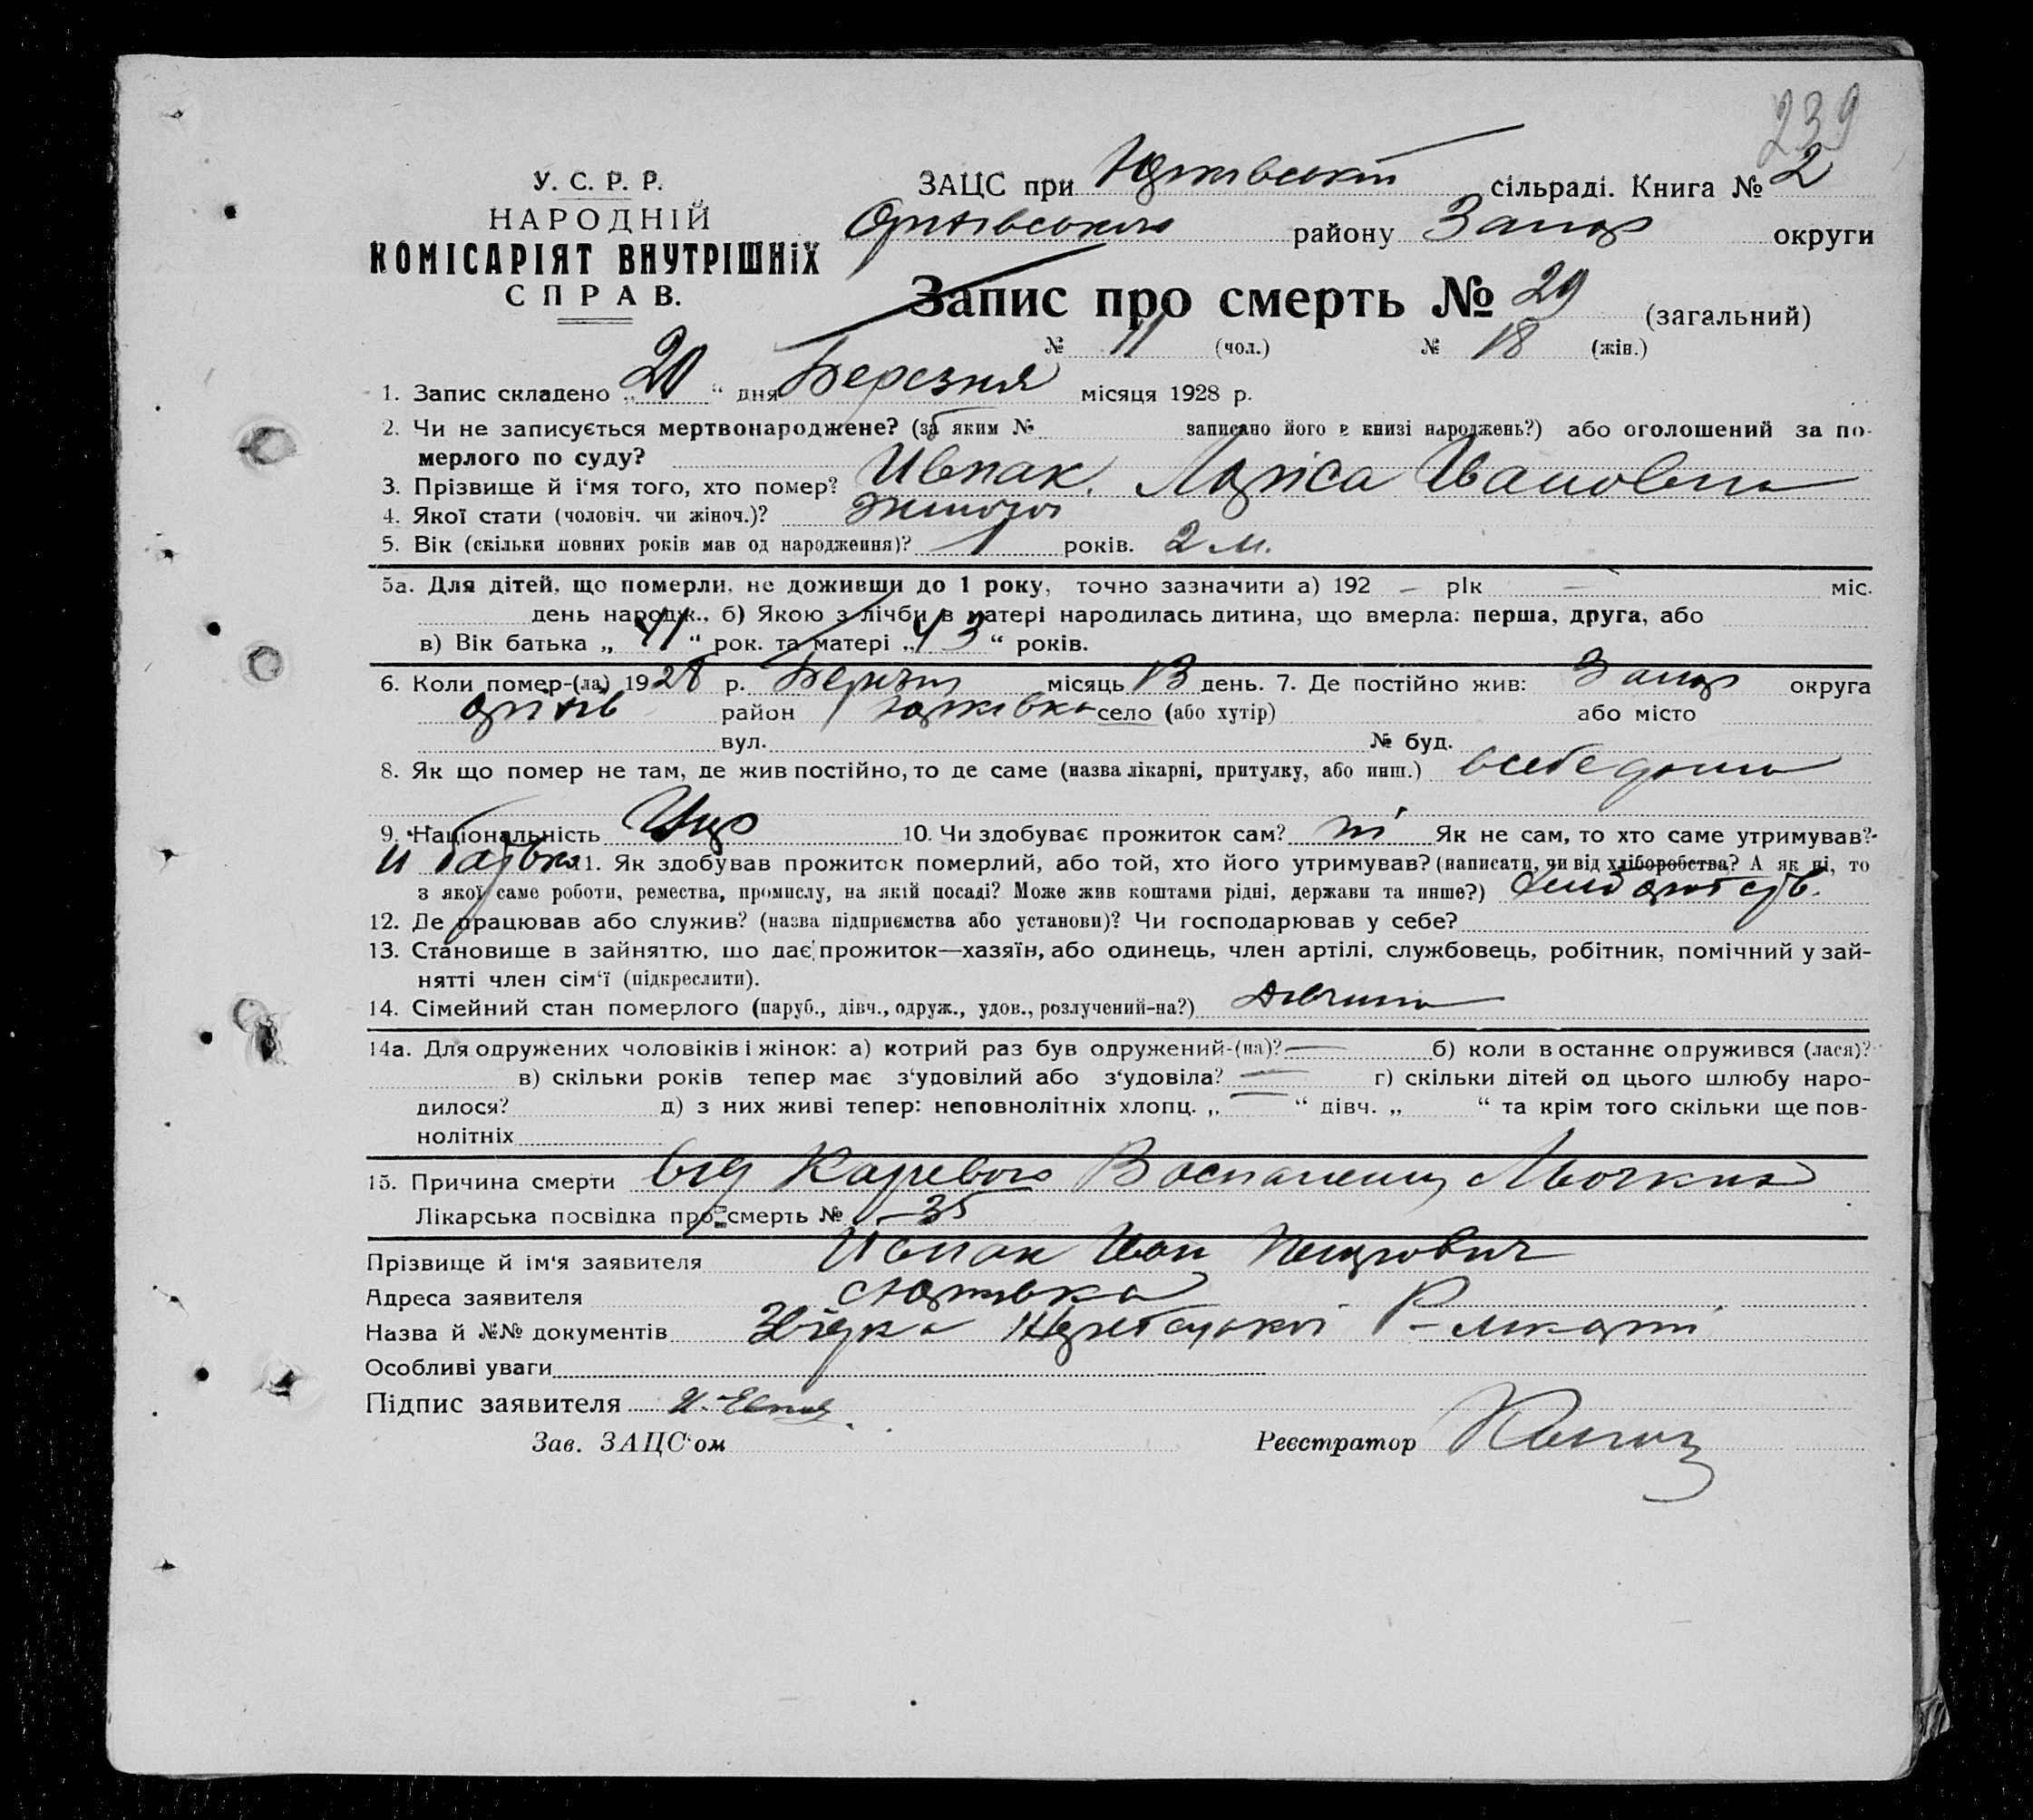 239
У. С. Р. Р.
НАРОДНІЙ
КОМІСАРІЯТ ВНУТРІШНіХ
СПРАВ.
ЗАЦС при Юрківській сільраді. Книга № 2
Оріхівського району Запор округи
Запис про смерть № 29 (загальний)
№ 11 (чол.) № 18 (жін.)
1. Запис складено „ 20 “ дня Березня місяця 1928 р.
2. Чи не записується мертвонароджене? (за яким № записано його в книзі народжень?) або оголошений за по-
мерлого по суду?
3. Прізвище й і‘мя того, хто помер? Ивпак Лоріса Ивановна
4. Якої стати (чоловіч. чи жіноч.)? жіночої
5. Вік (скільки повних років мав од народження)? 1 років. 2 м.
5а. Для дітей, що померли, не доживши до 1 року, точно зазначити а) 192 – рік – міс.
день народж., б) Якою з лічби в матері народилась дитина, що вмерла: перша, друга, або
в) Вік батька „ 41 “ рок. та матері „ 43 “ років.
6. Коли помер-(ла) 1928 р. Березня місяць 13 день. 7. Де постійно жив: Запор округа
Оріхів район Юрківка село (або хутір) або місто
вул. № буд.
8. Як що помер не там, де жив постійно, то де саме (назва лікарні, притулку, або инш.) всебе дома
9. Національність Укр 10. Чи здобуває прожиток сам? ні Як не сам, то хто саме утримував?
и батько 11. Як здобував прожиток померлий, або той, хто його утримував? (написати, чи від хліборобства? А як ні, то
з якої саме роботи, ремества, промислу, на якій посаді? Може жив коштами рідні, держави та инше?)
12. Де працював або служив? (назва підприємства або установи)? Чи господарював у себе?
13. Становище в зайняттю, що дає прожиток—хазяїн, або одинець, член артілі, службовець, робітник, помічний у зай-
нятті член сім‘ї (підкреслити).
14. Сімейний стан померлого (паруб., дівч., одруж., удов., розлучений-на?) Дівчина
14а. Для одружених чоловіків і жінок: а) котрий раз був одружений-(на)? — б) коли в останнє одружився (лася)?
в) скільки років тепер має з‘удовілий або з‘удовіла? — г) скільки дітей од цього шлюбу наро-
дилося? д) з них живі тепер: неповнолітніх хлопц. „ — “ дівч. „ “ та крім того скільки ще пов-
нолітніх
15. Причина смерти від Каревого Воспаления
Лікарська посвідка про смерть № 35
Прізвище й ім‘я заявителя Ивпак Иван Петрович
Адреса заявителя с Юрківка
Назва й №№ документів
Особливі уваги
Підпис заявителя
Зав. ЗАЦС‘ом Реєстратор